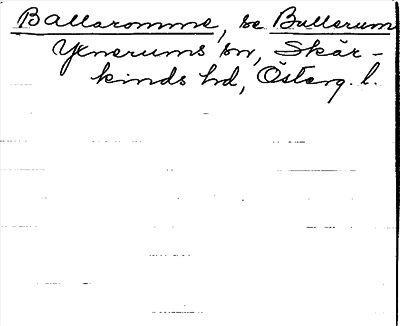 Ballaromme, se Bullerum
Yxnerums sn, Skär-
kinds hd, Österg. l.